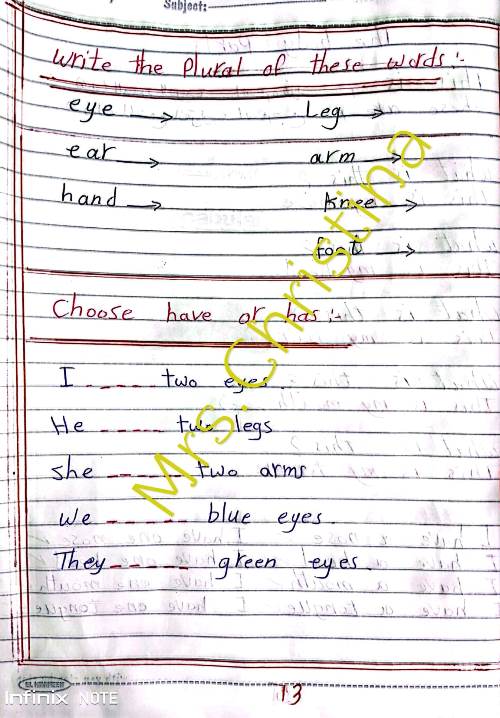 Subject:
Write the Plural of these words:-
eye → Leg →
ear → arm →
hand → knee →
foot →
Choose have or has:-
I ---- two eyes.
He ----- two legs
she ----- two arms
We ----- blue eyes.
They ----- green eyes.
Mrs. Christina
Infinix NOTE
13